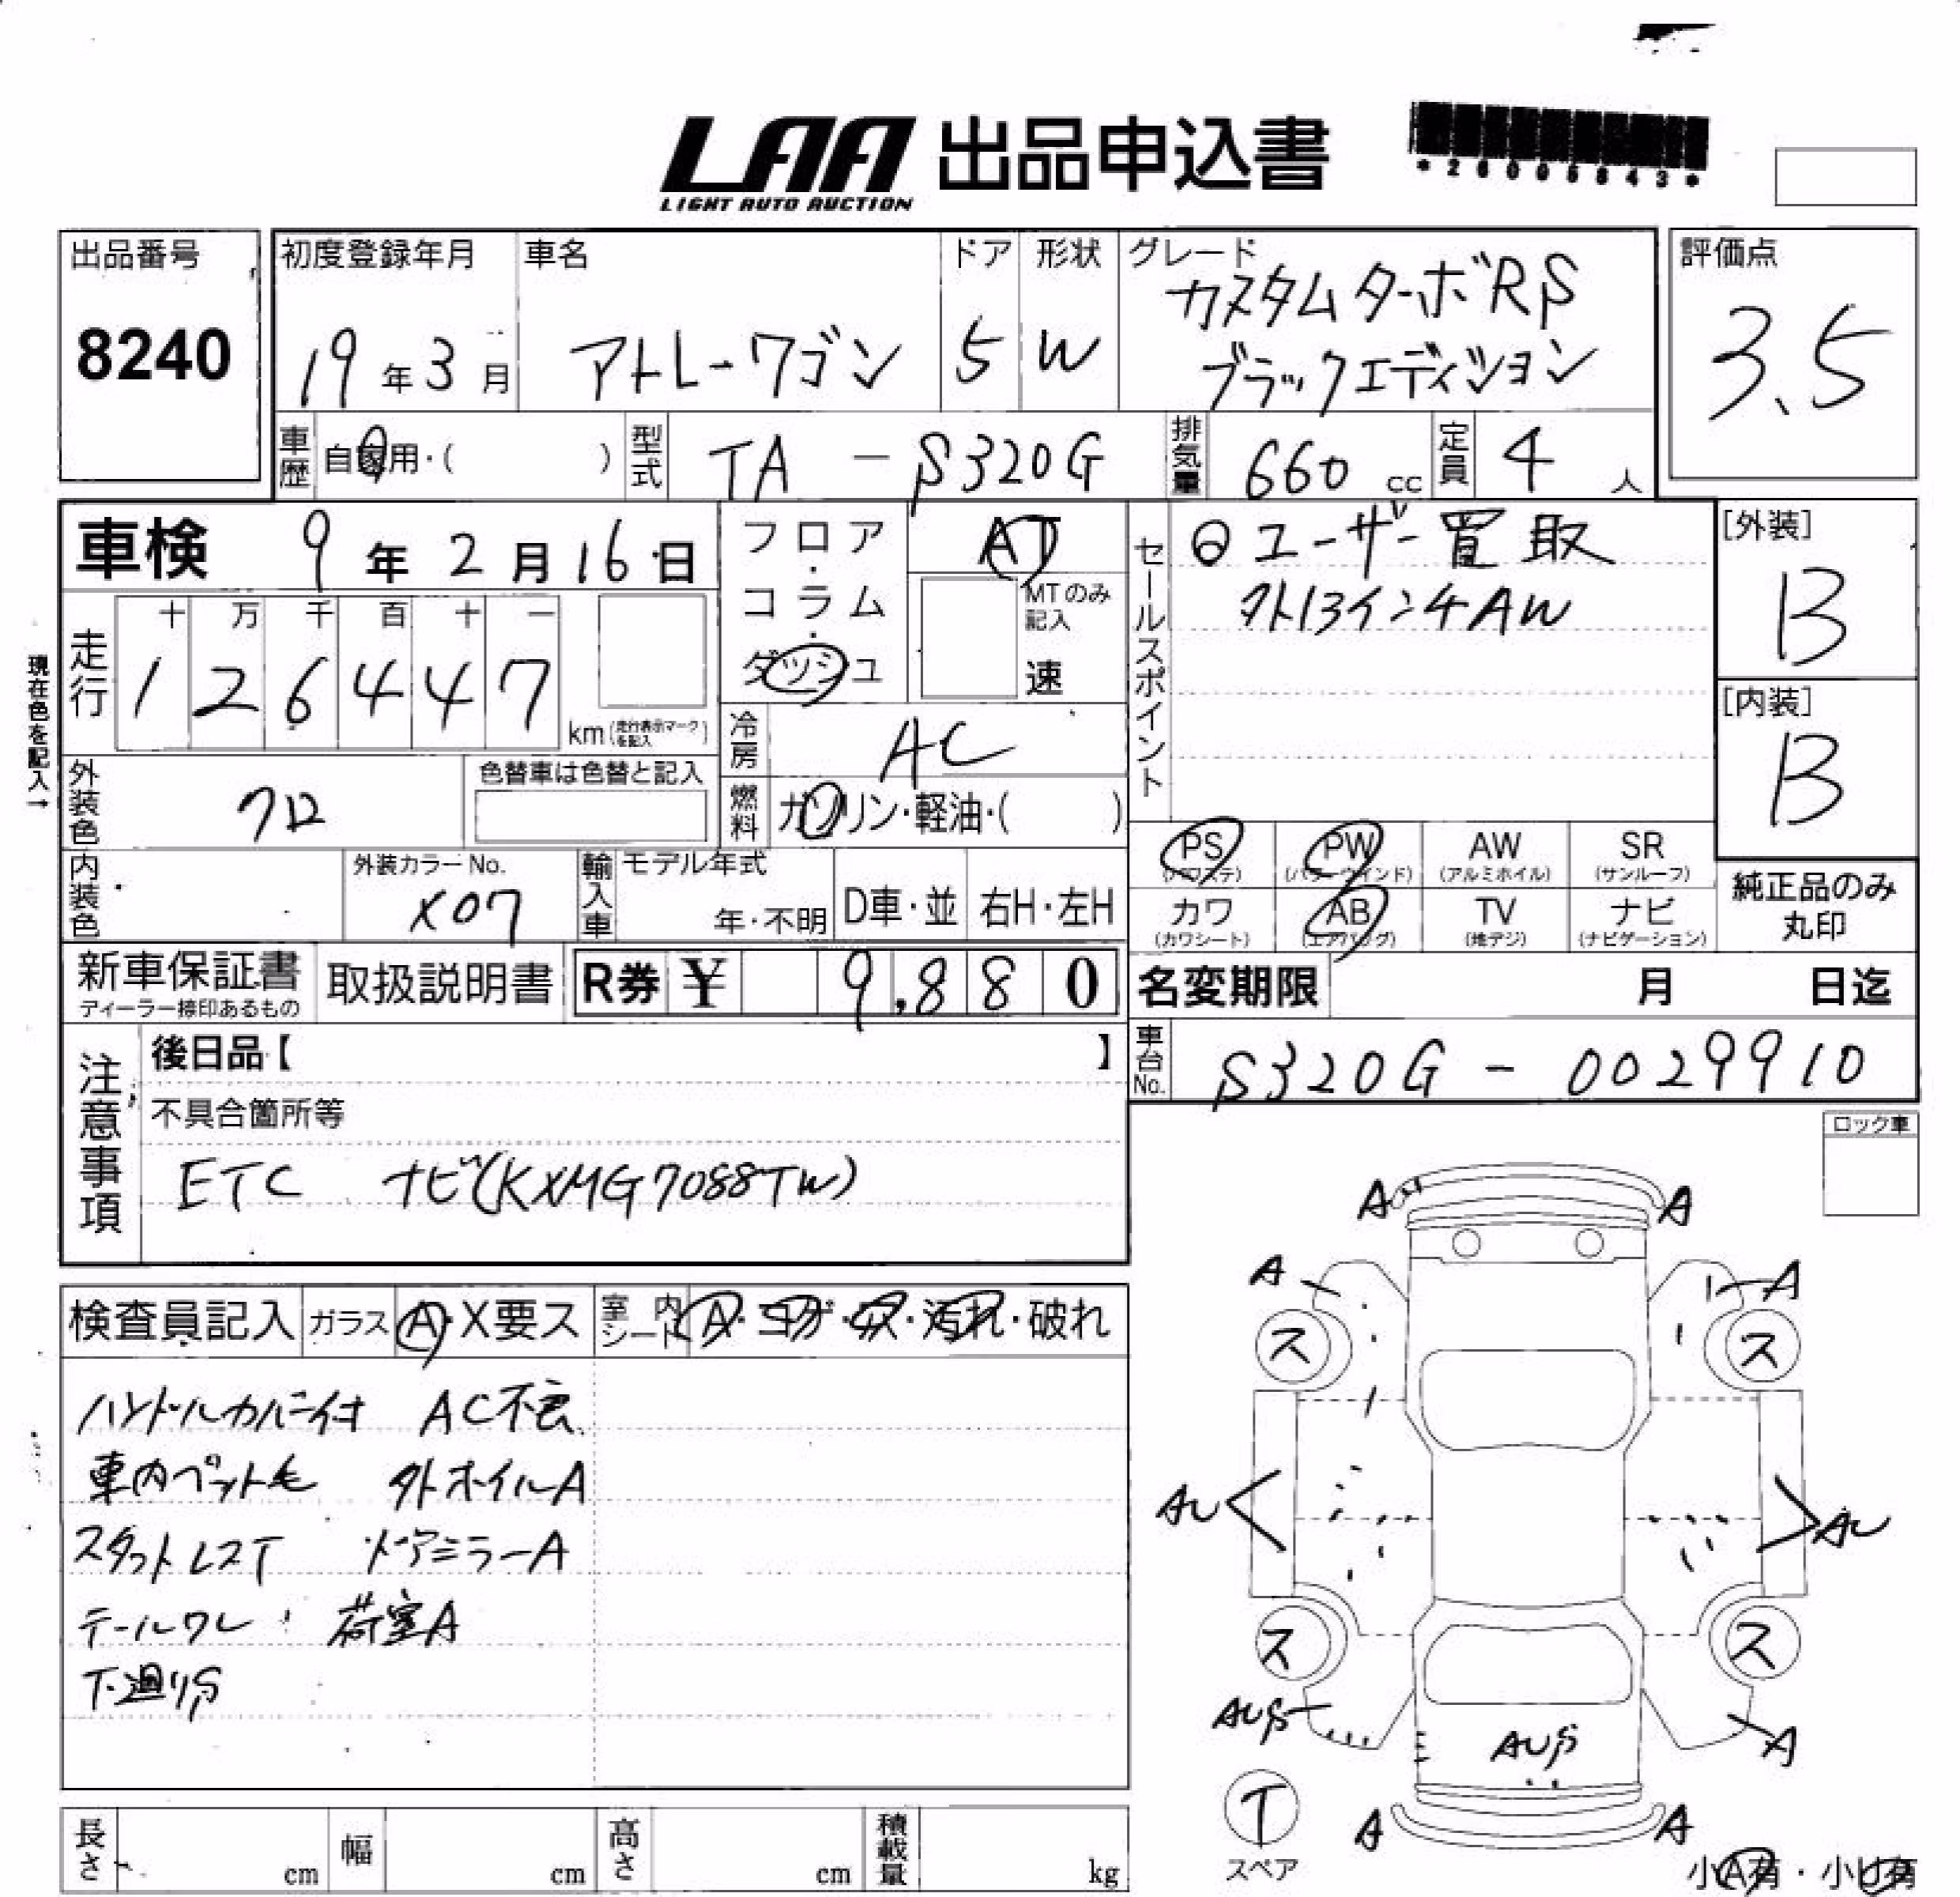 LAA 出品申込書
LIGHT AUTO AUCTION
*26095843*
出品番号
8240
初度登録年月
19年3月
車名
アトレーワゴン
ドア
5
形状
W
グレード
カスタムターボRS
ブラックエディション
評価点
3.5
車歴 自家用・( )
型式 TA - S320G
排気量 660 cc
定員 4 人
車検 9年2月16日
フロア・コラム・ダッシュ
AT
MTのみ記入
速
セールスポイント
ユーザー買取
外13インチAW
[外装]
B
[内装]
B
現在色を記入→
走行
十 万 千 百 十 一
1 2 6 4 4 7
km(走行表示マークを記入)
冷房 AC
燃料 ガソリン・軽油・( )
外装色 クロ
色替車は色替と記入
内装色
外装カラーNo.
X07
輸入車
モデル年式
年・不明
D車・並
右H・左H
PS
(パワステ)
PW
(パワーウインド)
AW
(アルミホイル)
SR
(サンルーフ)
カワ
(カワシート)
AB
(エアバッグ)
TV
(地デジ)
ナビ
(ナビゲーション)
純正品のみ
丸印
新車保証書
ディーラー捺印あるもの
取扱説明書
R券 ¥ 9,880
名変期限 月 日迄
車台No. S320G - 0029910
注意事項
後日品【 】
不具合箇所等
ETC ナビ(KXMG7088TW)
ロック車
検査員記入
ガラス A・X要ス
室内シート A・コゲ・ス・汚れ・破れ
ハンドルカバー付 AC不良
車内ペット毛 外ホイルA
スタットレスT ドアミラーA
テールワレ 荷室A
下廻りS
A A
A A
ス ス
AU AU
ス ス
AUS AUS A
T
スペア
A A
小A有・小U有
長さ cm
幅 cm
高さ cm
積載量 kg